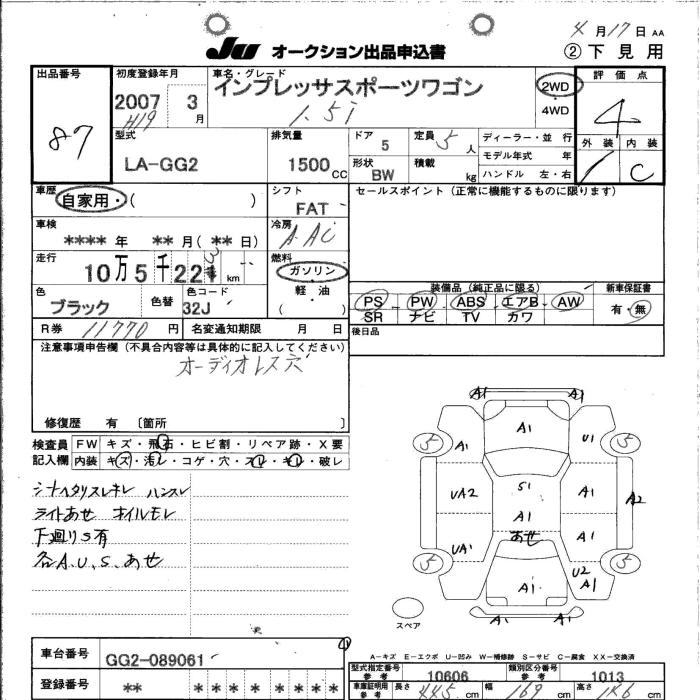 4月17日 AA
JU オークション出品申込書
②下見用
出品番号
87
初度登録年月
2007 3月
H19
車名・グレード
インプレッサスポーツワゴン
1.5i
2WD
4WD
評価点
4
外装 内装
C
型式
LA-GG2
排気量
1500CC
ドア
5
定員
5人
形状
BW
積載
kg
ディーラー・並行
モデル年式 年
ハンドル 左・右
車歴
自家用・( )
シフト
FAT
セールスポイント(正常に機能するものに限ります)
車検
****年 **月(**日)
冷房
AAC
走行
10万5千22 km
燃料
ガソリン
軽・油
( )
色
ブラック
色替
色コード
32J
装備品(純正品に限る)
PS PW ABS エアB AW
SR ナビ TV カワ
新車保証書
有・無
R券 11770円
名変通知期限 月 日
後日品
注意事項申告欄(不具合内容等は具体的に記入してください)
オーディオレス穴
修復歴 有 〔箇所 〕
検査員記入欄
FW キズ・飛石・ヒビ割・リペア跡・X要
内装 キズ・汚レ・コゲ・穴・スレ・キレ・破レ
シートヘタリスレキレ ハンスレ
ライトあせ オイルモレ
下廻りS有
各A.U.S.あせ
A1 A1
A1
5 A1 U1 5
UA2 S1 A1 A2
A1
あせ
UA1 A1
5 A1 U2 A1 5
A1 A1
スペア
A-キズ E-エクボ U-凹み W-補修跡 S-サビ C-腐食 XX-交換済
車台番号
GG2-089061
登録番号
** * * * * * * * *
型式指定番号
参考
10606
類別区分番号
参考
1013
車庫証明用
参考
長さ 445cm 幅 169cm 高さ 146cm